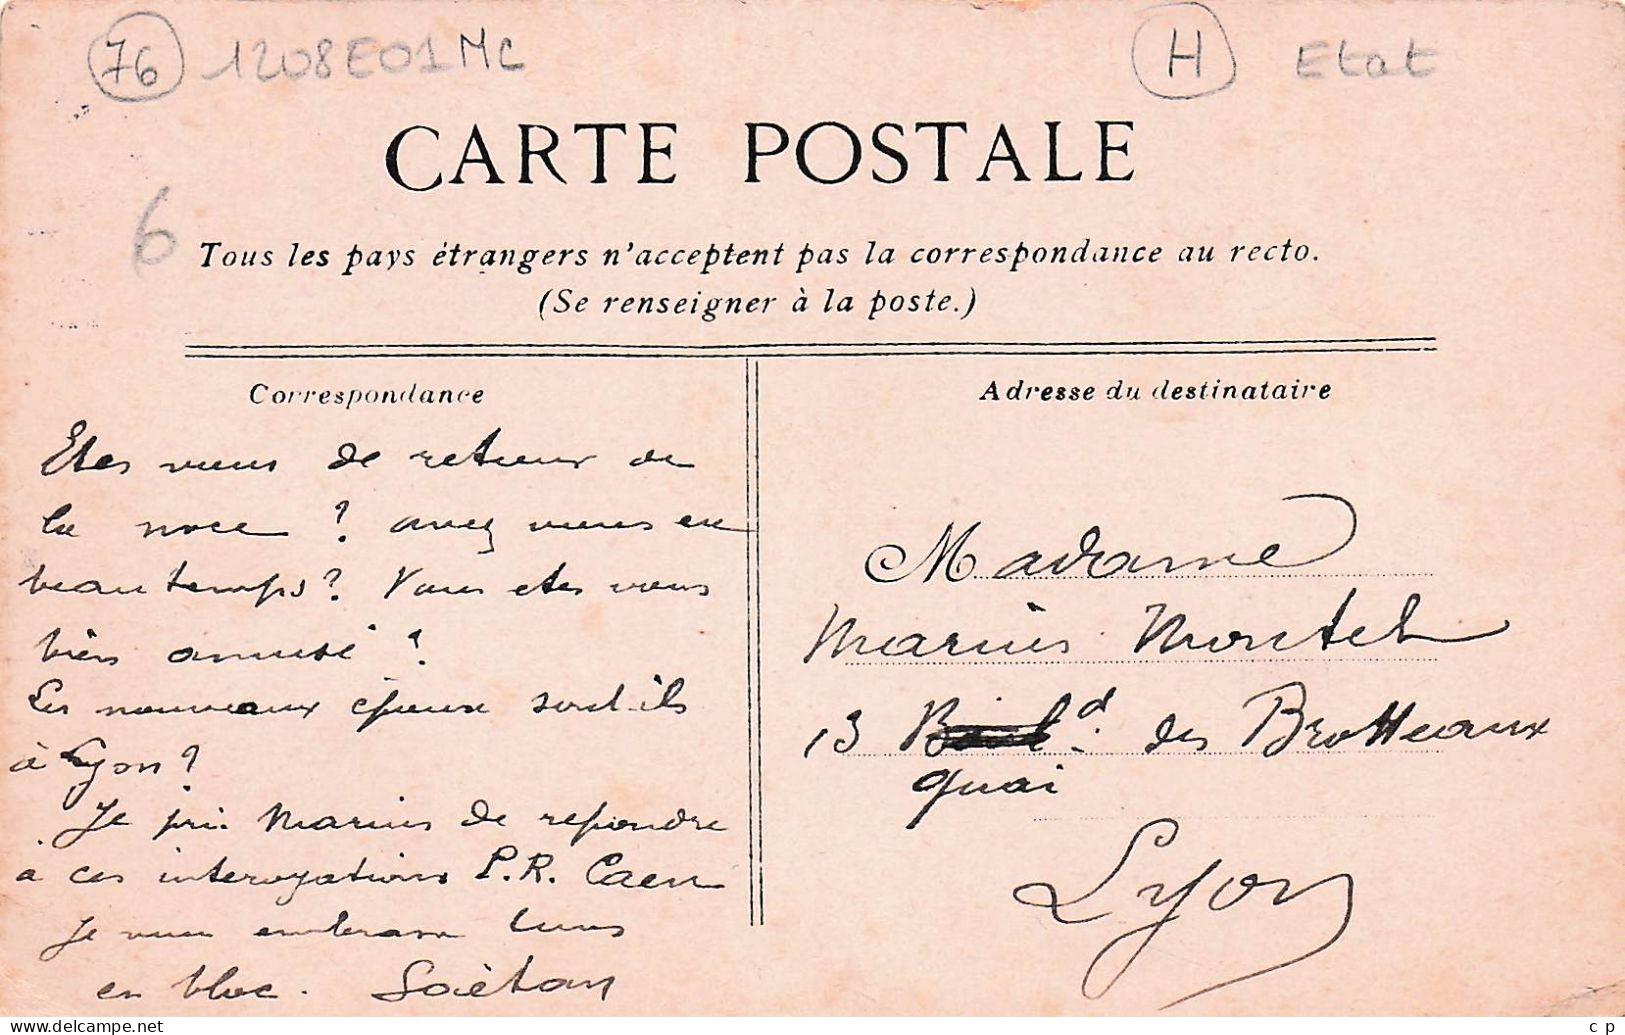 76 1208E01MC H Etat
CARTE POSTALE
6
Tous les pays étrangers n'acceptent pas la correspondance au recto.
(Se renseigner à la poste.)
Correspondance
Etes vous de retour de
la noce ? avez vous eu
beau temps ? Vous etes vous
bien amusé ?
Les nouveaux époux sont-ils
à Lyon ?
Je prie Marius de repondre
à ces interogations P.R. Caen
Je vous embrasse tous
en bloc. Gaëtan
Adresse du destinataire
Madame
Marius Montel
13 d. des Brotteaux
quai
Lyon
www.delcampe.net
c_p